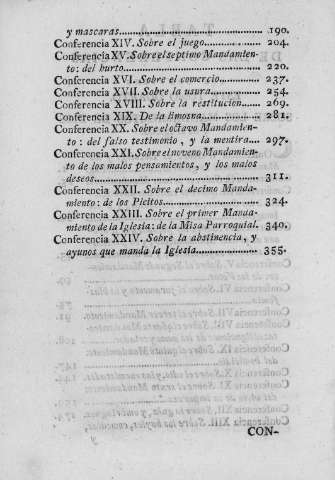 y mascaras................................190.
Conferencia XIV. Sobre el juego................204.
Conferencia XV. Sobre el septimo Mandamien-
to: del hurto................................220.
Conferencia XVI. Sobre el comercio.............237.
Conferencia XVII. Sobre la usura...............254.
Conferencia XVIII. Sobre la restitucion........269.
Conferencia XIX. De la limosna.................281.
Conferencia XX. Sobre el octavo Mandamien-
to: del falso testimonio, y la mentira.........297.
Conferencia XXI. Sobre el noveno Mandamien-
to de los malos pensamientos, y los malos
deseos.........................................311.
Conferencia XXII. Sobre el decimo Manda-
miento: de los Pleitos.........................324.
Conferencia XXIII. Sobre el primer Manda-
miento de la Iglesia: de la Misa Parroquial. 340.
Conferencia XXIV. Sobre la abstinencia, y
ayunos que manda la Iglesia....................355.
CON-